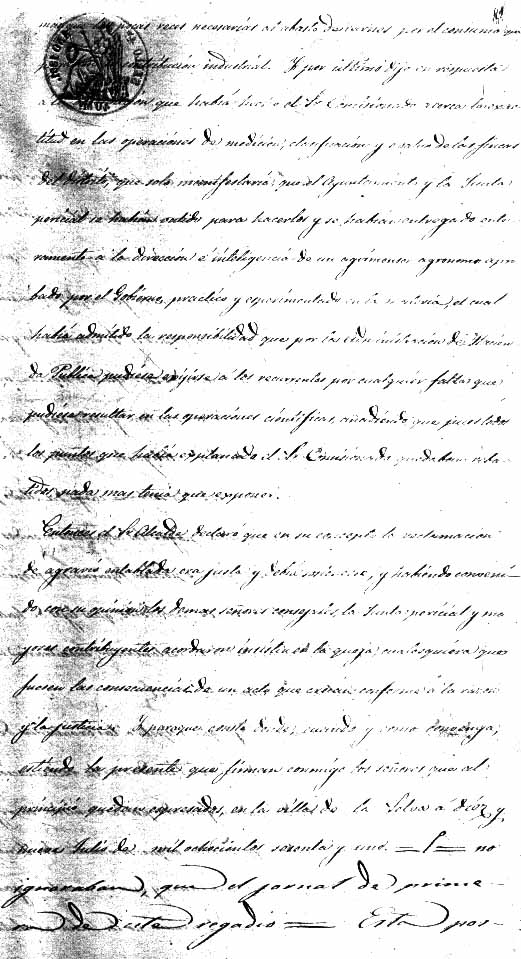 necesarias al abasto de carnes por el consumo que
contribución industrial. Y por ultimo dijo en respuesta
que habia hecho el Sr. Comisionado acerca la exac-
titud en las operaciones de medicion, clasificacion y evaluo de las fincas
del distrito, que solo manifestaria, que el Ayuntamiento y la Junta
pericial se habian unido para hacerlos y se habian entregado ente-
ramente a la dirección é inteligencia de un agrimensor agronomo apro-
bado por el Gobierno, practico y esperimentado en la materia, el cual
habia admitido la responsabilidad que por la administracion de Hacien-
da Publica pudiese exijirse á los recurrentes por cualquier falta que
pudiese resultar en las operaciones cientificas, añadiendo que pues todos
los puntos que habia esplanado el Sr. Comisionado quedaban reba-
tidos nada mas tenia que exponer.
Entonces el Sr. Alcalde declaró que en su concepto la reclamacion
de agravios entablada era justa y debia, y habiendo conveni-
do con su opinion los demas señores consejales, la Junta pericial y ma-
yores contribuyentes acordaron insistir en la queja, cualesquiera que
fuesen las consecuencias de un acto que creian conforme á la razon
y la justicia. Y paraque conste donde, cuando y como convenga,
estiendo la presente que firman conmigo los señores que al
principio quedan espresados, en la villa de la Selva a diez y
nueve Julio de mil ochocientos sesenta y uno. no
ignoraban, que el jornal de prime-
ra de este regadio = Esta por-